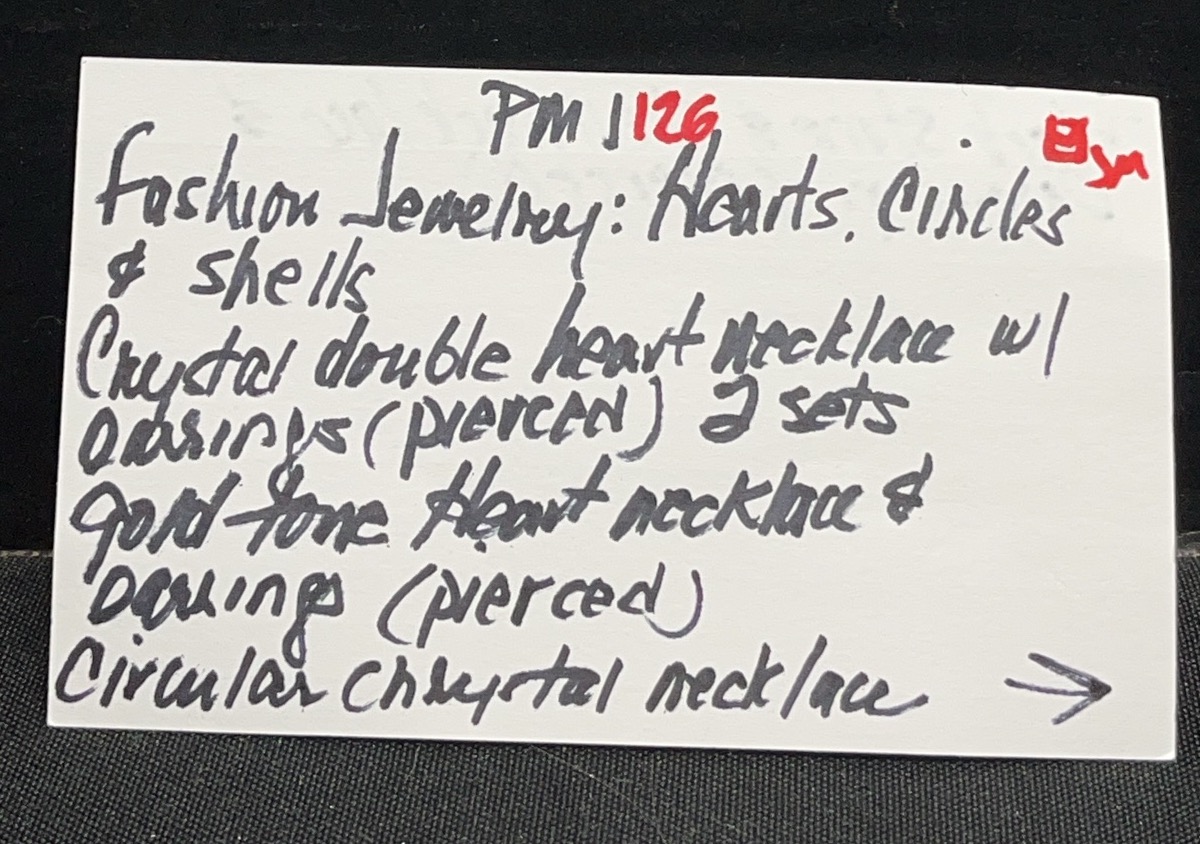 PM J126
Fashion Jewelry: Hearts, Circles
& shells
Crystal double heart necklace w/
earrings (pierced) 2 sets
gold tone Heart necklace &
earrings (pierced)
Circular chrystal necklace →